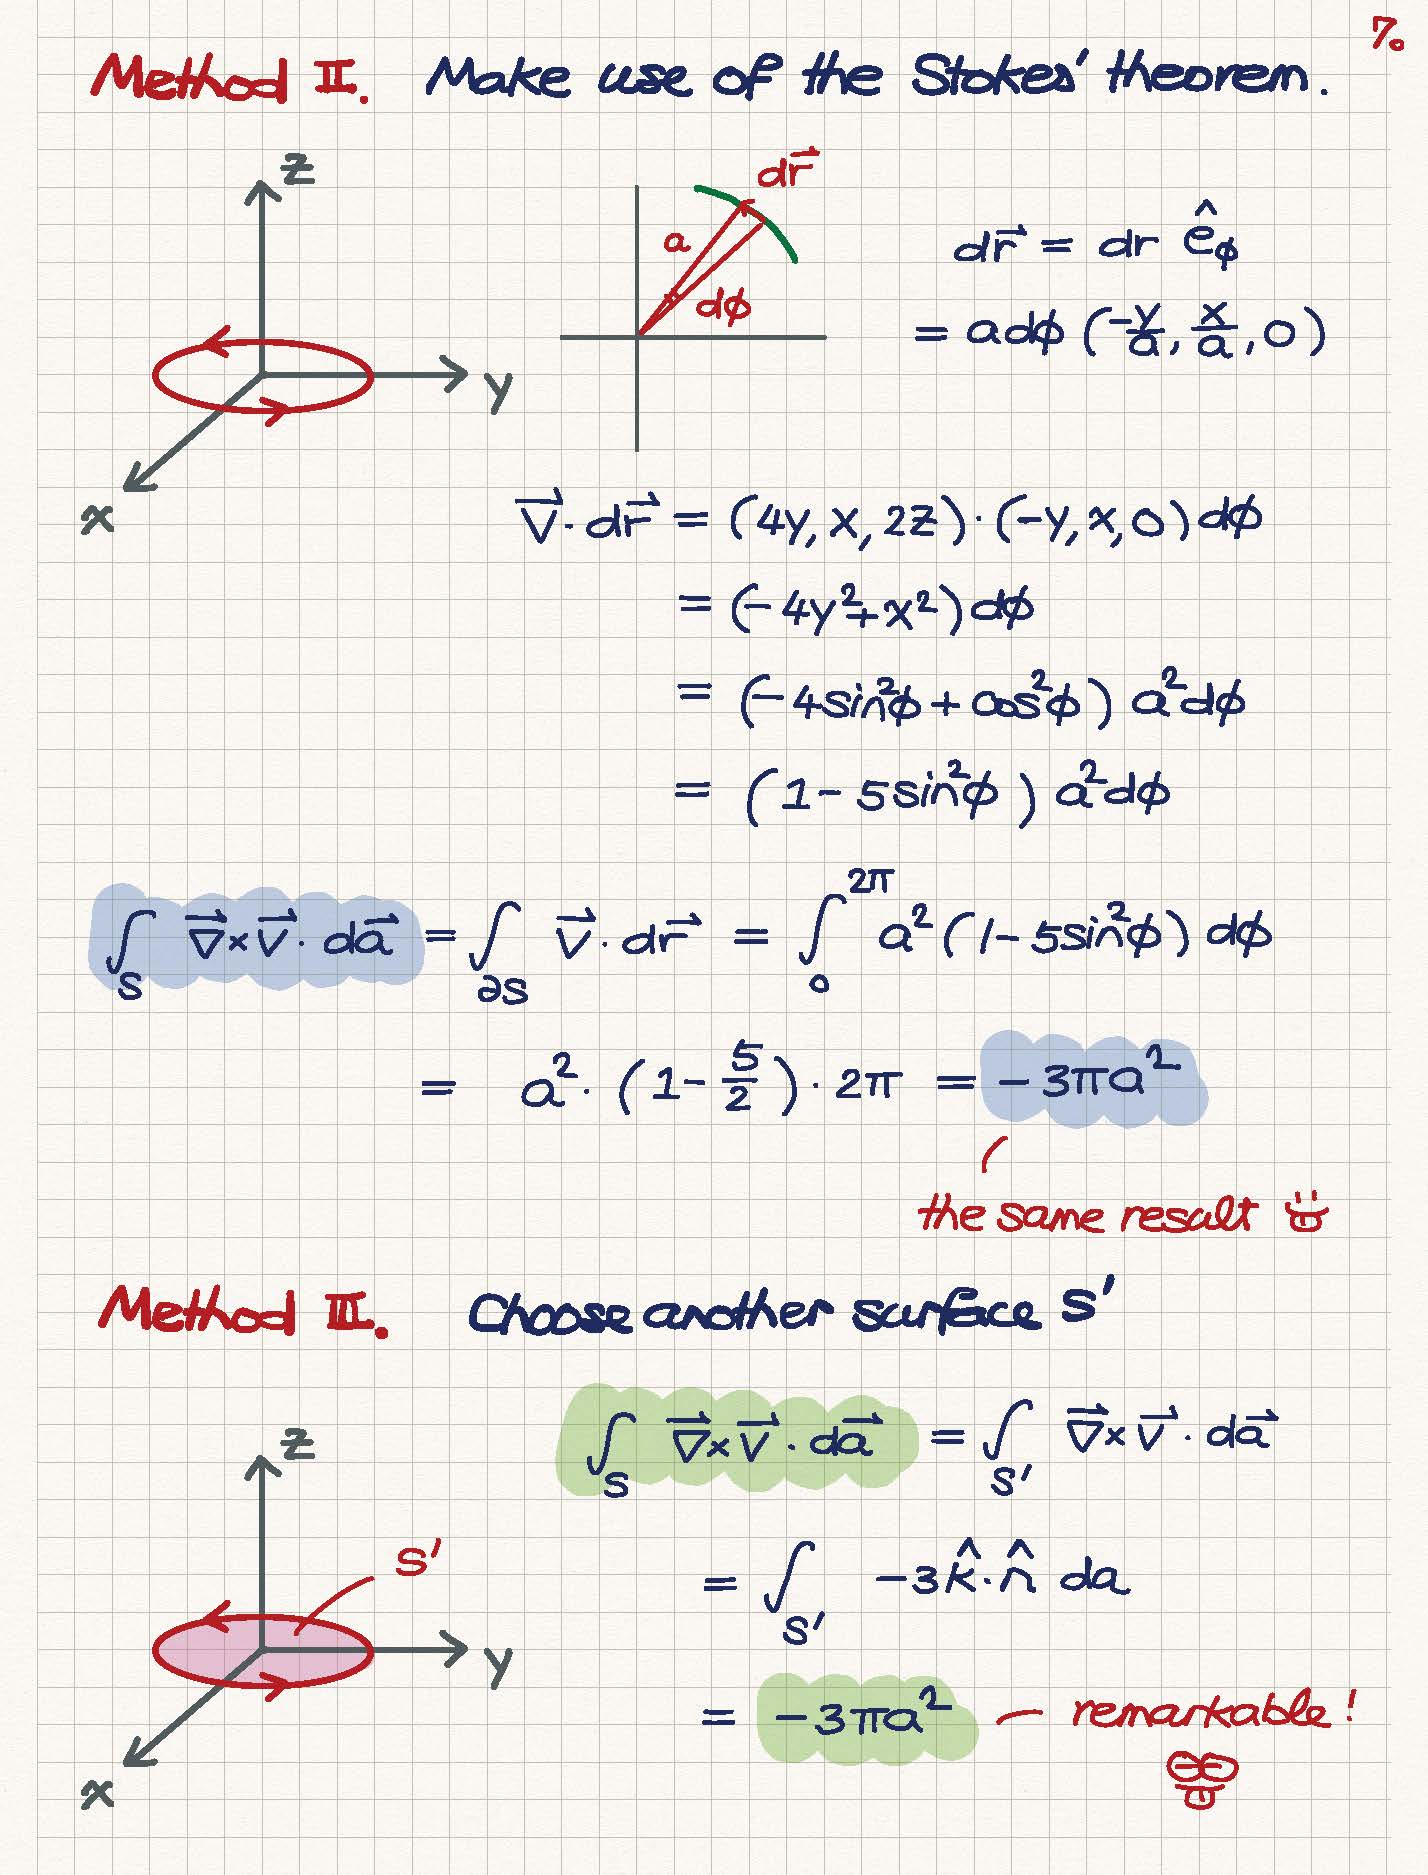 7.
Method II. Make use of the Stokes' theorem.
z
y
x
dr⃗
a
dϕ
dr⃗ = dr ê_ϕ
= a dϕ (-y/a, x/a, 0)
V⃗ · dr⃗ = (4y, x, 2z) · (-y, x, 0) dϕ
= (-4y² + x²) dϕ
= (-4sin²ϕ + cos²ϕ) a² dϕ
= (1 - 5sin²ϕ) a² dϕ
∫_S ∇⃗ × V⃗ · da⃗ = ∫_∂S V⃗ · dr⃗ = ∫_0^2π a² (1 - 5sin²ϕ) dϕ
= a² · (1 - 5/2) · 2π = -3πa²
the same result
Method III. Choose another surface S'
∫_S ∇⃗ × V⃗ · da⃗ = ∫_S' ∇⃗ × V⃗ · da⃗
z
S'
y
x
= ∫_S' -3 k̂ · n̂ da
= -3πa² – remarkable!